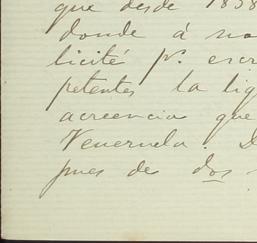 que desde 1858
donde á no
licité pr. escr
petentes la liq
acreencia que
Venezuela. D
pues de dos